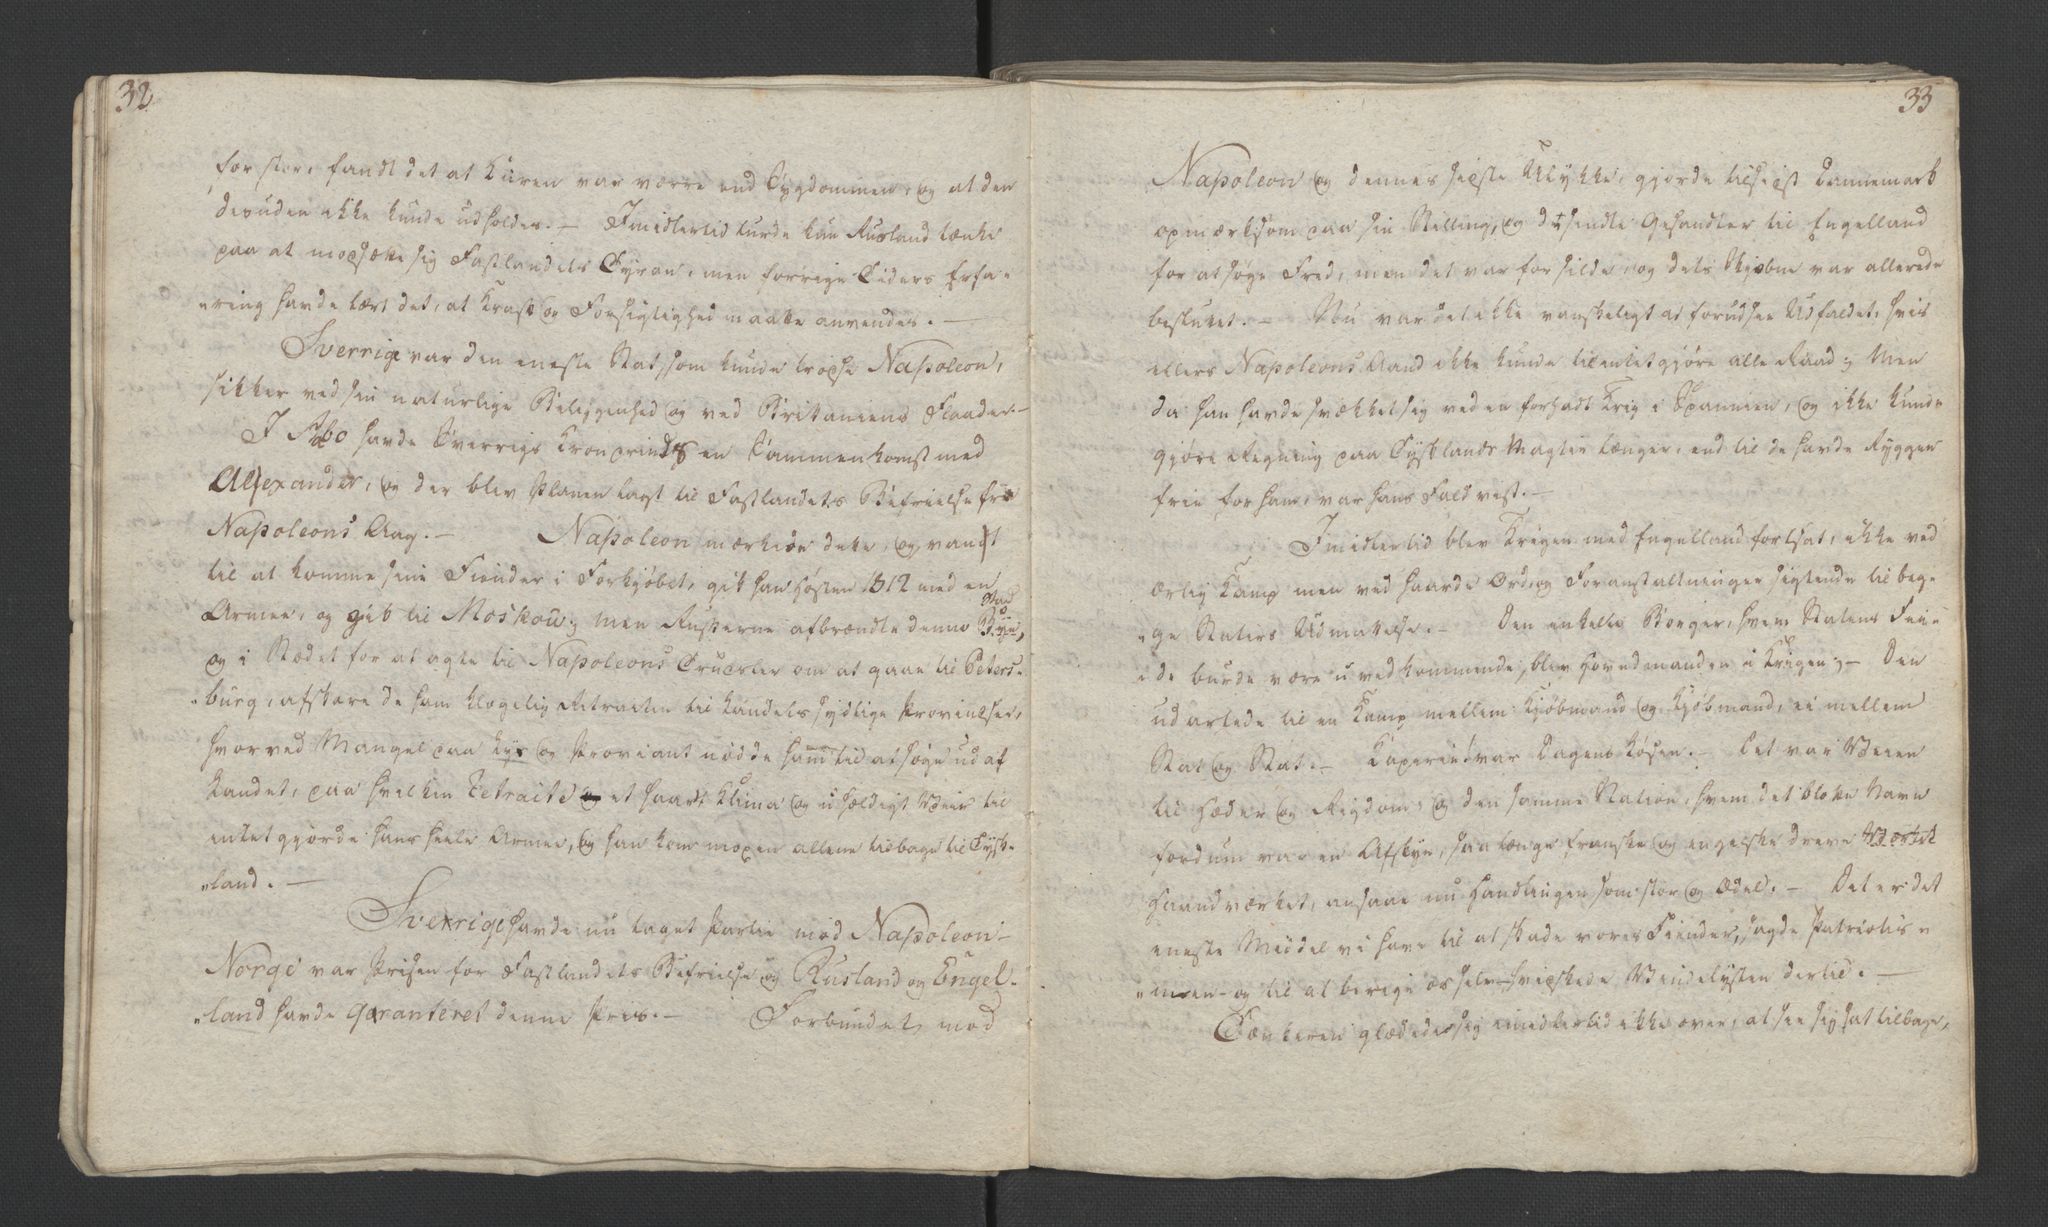 32
for stor, fandt det at Kuren var værre end Sygdommen, og at den
desuden ikke kunde udholdes. – Imidlertid turde kun Rusland tænke
paa at modsætte sig Fastlandets Tyran, men forrige Tiders Erfa-
"ring havde lært det, at Kraft og Forsigtighed maatte anvendes. –
Sverrige var den eneste Stat, som kunde trodse Napoleon,
sikker ved sin naturlige Beliggenhed og ved Britaniens Flaader. –
I Åbo havde Sverrigs Kronprinds en Sammenkomst med
Alexander, og der blev Planen lagt til Fastlandets Befrielse fra
Napoleons Aag. – Napoleon mærkede dette, og vant
til at komme sine Fiender i Forkjøbet, gik han Høsten 1812 med en
Armee, og gik til Moskou; men Russerne afbrændte denne Stad
og i Stædet for at agte til Napoleons Trudsler om at gaae til Peters-
"burg, afskare de ham klogelig Retraiten til Landets sydlige Provindser,
hvorved Mangel paa Lys og Proviant nødde ham til at søge ud af
Landet, paa hvilken Retraite et haardt Klima og uheldigt Veir til
intetgjorde hans heele Armee, og han kom næsten allene tilbage til Tysk-
"land. –
Sverrige havde nu taget Partie mod Napoleon –
Norge var Prisen for Fastlandets Befrielse og Rusland og Engel-
"land havde garanteret denne Priis. – Forbundet mod
33
Napoleon og dennes sidste Ulykke, gjorde tilsidst Dannemark
opmærksom paa sin Stilling, og det sendte Gesandter til Engelland
for at søge Fred, men det var for silde, og dets Skjæbne var allerede
besluttet. – Nu var det ikke vanskeligt at forudsee Udfaldet, hvis
ellers Napoleons Aand ikke kunde tilintetgjøre alle Raad; Men
da han havde svækket sig ved en forhadt Krig i Spannien, og ikke kunde
gjøre Regning paa Tysklands Magter længer, end til de havde Ryggen
frie for ham, var hans Fald vist. –
Imidlertid blev Krigen med Engelland fortsat, ikke ved
ærlig Kamp men ved haarde Ord og Foranstaltninger sigtende til beg-
"ge Staters Udmattelse. – Den enkelte Borger, hvem Statens Fei-
"de burde være uvedkommende, blev Hovedmanden i Krigen; – Den
udartede til en Kamp mellem Kjøbmand og Kjøbmand, ei mellem
Stat og Stat. – Kaperie var Dagens Løsen. – Det var Veien
til Hæder og Rigdom, og den samme Nation, hvem det blotte Navn
fordum var en Afskye, saa længe franske og engelske dreve
Haandværket, ansaae nu Handlingen som stor og Ædel. – Det er det
eneste Middel vi have til at skade vores Fiender, sagde Patriotis-
"men – og til at berige os selv – hvidskede Vindelysten dertil. –
Tænkeren glædede sig imidlertid ikke over, at see sig sat tilbage,